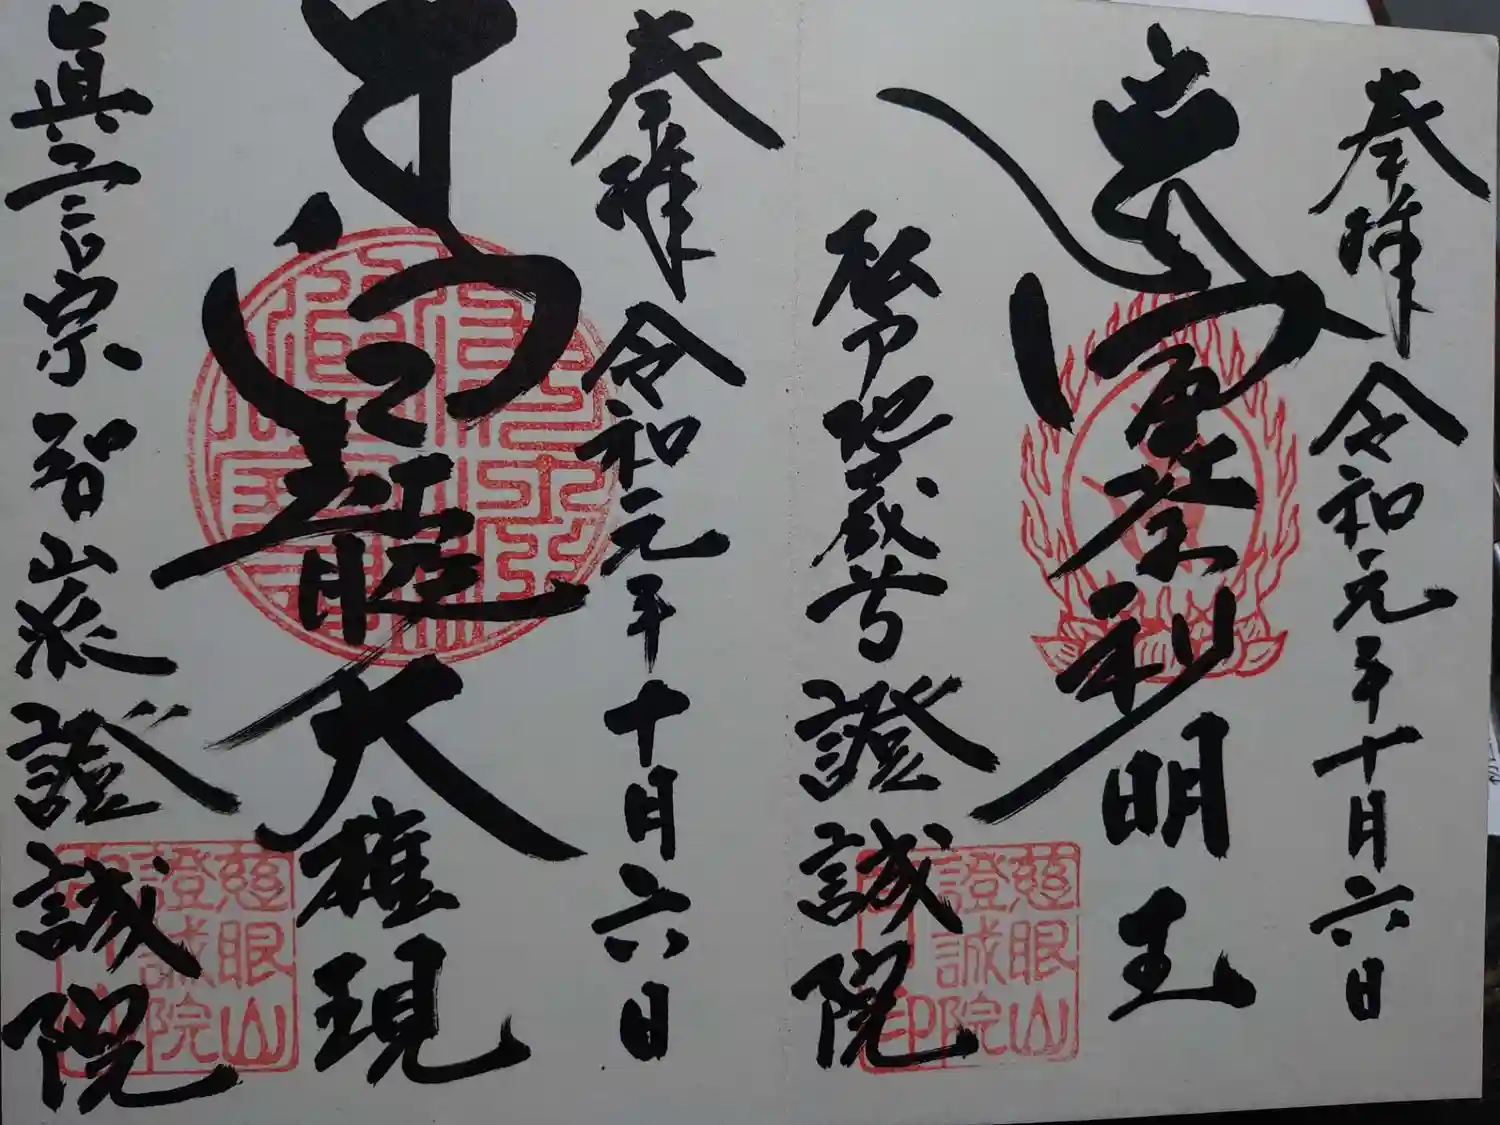 奉拝 令和元年十月六日
軍荼利明王
地蔵寺 證誠院
慈眼山
證誠院
印
奉拝 令和元年十月六日
龍大権現
眞言宗智山派 證誠院
慈眼山
證誠院